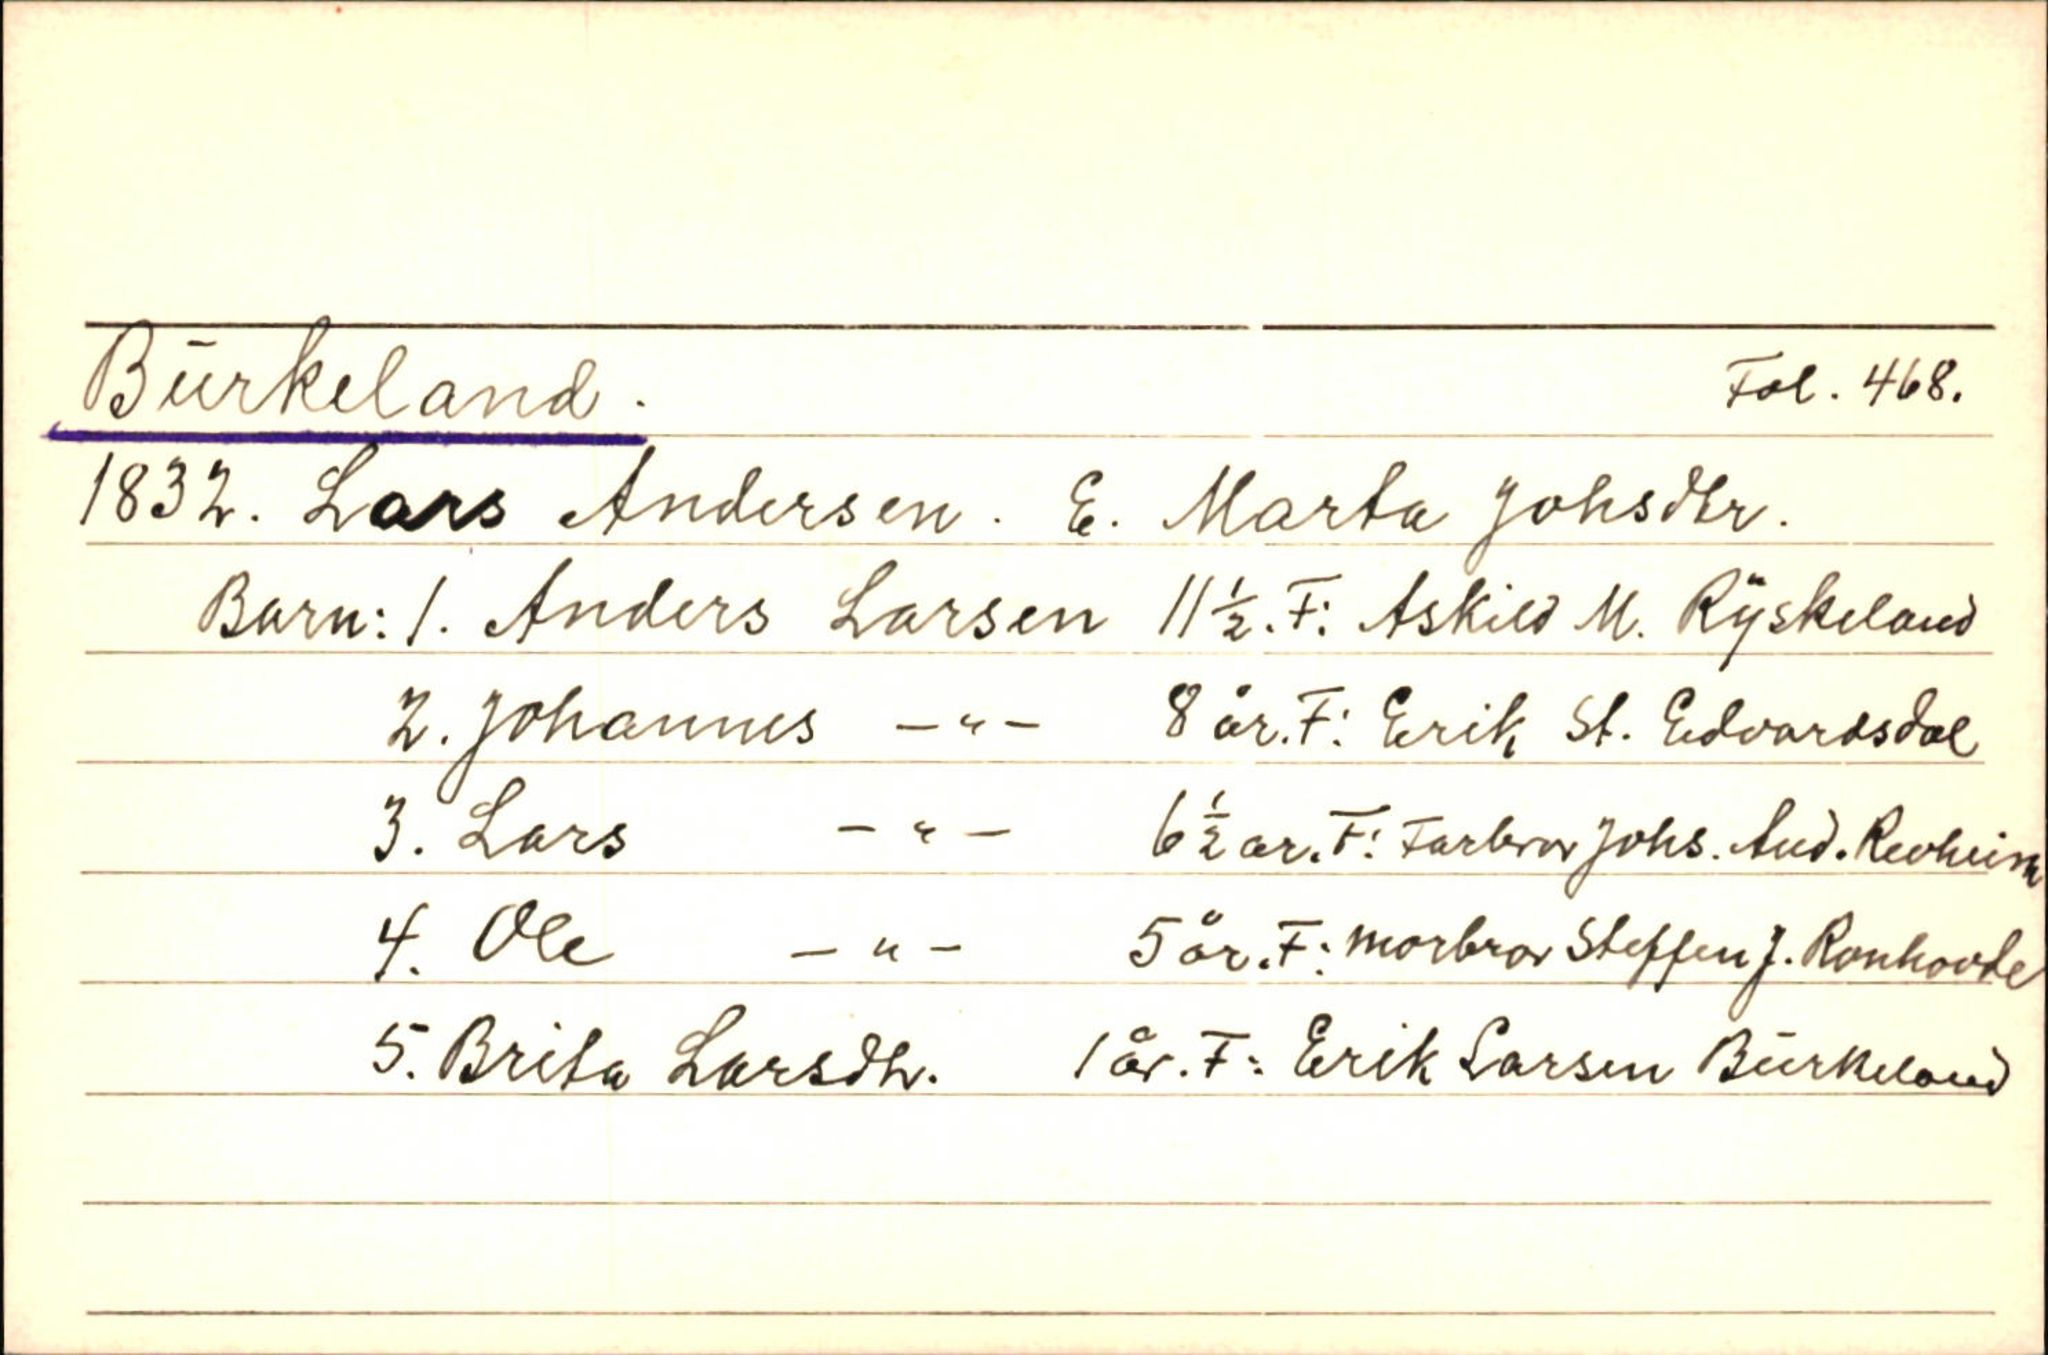 Būrkeland. Fol. 468.
1832. Lars Andersen. E. Marta Johsdtr.
Barn: 1. Anders Larsen 11½. F: Askild M. Rÿskeland
2. Johannes —"— 8 år. F: Erik St. Edvardsdal
3. Lars —"— 6½ ar. F: Farbror Johs. And. Revheim
4. Ole —"— 5 år. F: morbror Steffen J. Ronhovde
5. Brita Larsdtr. 1 år. F: Erik Larsen Būrkeland